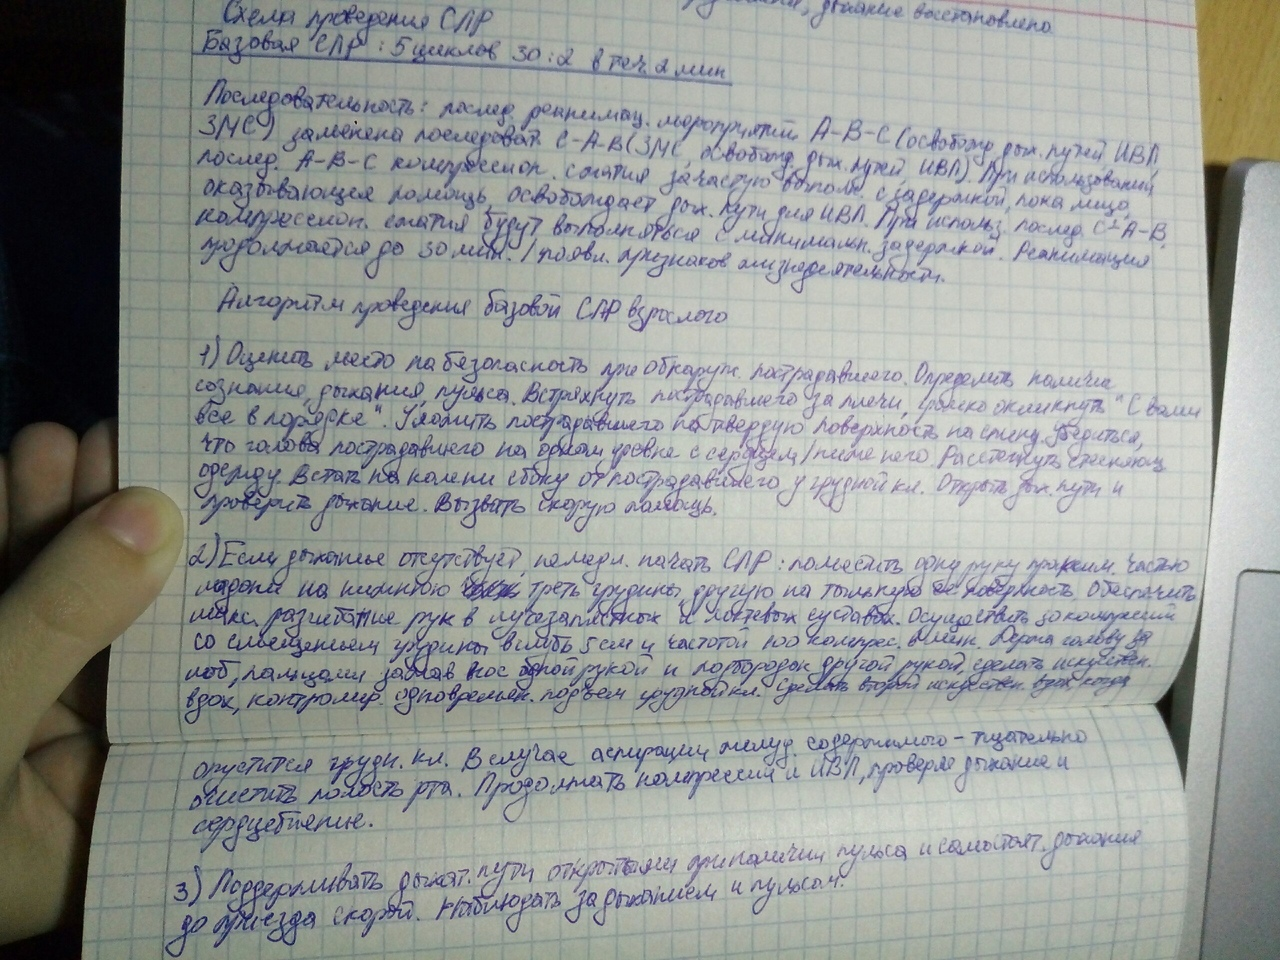 дыхание восстановлено
Схема проведения СЛР
Базовая СЛР: 5 циклов 30:2 в теч. 2 мин
Последовательность: послед. реанимац. мероприятий А-В-С (освобожд. дых. путей ИВЛ
ЗМС) заменена последоват. С-А-В (ЗМС, освобожд. дых. путей ИВЛ). При использовании
послед. А-В-С компрессион. сжатия зачастую выполн. с задержкой, пока лицо,
оказывающее помощь, освобождает дых. пути для ИВЛ. При использ. послед. С-А-В,
компрессион. сжатия будут выполняться с минимальн. задержкой. Реанимация
продолжается до 30 мин. / появл. признаков жизнедеятельности.
Алгоритм проведения базовой СЛР взрослого
1) Оценить место на безопасность при обнаруж. пострадавшего. Определить наличие
сознания, дыхания, пульса. Встряхнуть пострадавшего за плечи, громко окликнуть "С вами
все в порядке". Уложить пострадавшего на твердую поверхность на спину. Убедиться,
что голова пострадавшего на одном уровне с сердцем / ниже него. Расстегнуть стесняющ.
одежду. Встать на колени сбоку от пострадавшего у грудной кл. Открыть дых. пути и
проверить дыхание. Вызвать скорую помощь.
2) Если дыханье отсутствует, немедл. начать СЛР: поместить одну руку проксим. частью
ладони на нижнюю треть грудины, другую на тыльную её поверхность. Обеспечить
макс. разгибание рук в лучезапястных и локтевых суставах. Осуществить 30 компрессий
со смещением грудины вглубь 5 см и частотой 100 компрес. в мин. Держа голову за
лоб, пальцами зажав нос одной рукой и подбородок другой рукой, сделать искуствен.
вдох, контролир. одновременн. подъем грудной кл. Сделать второй искуствен. вдох, когда
опустится грудн. кл. В случае аспирации желуд. содержимого - тщательно
очистить полость рта. Продолжать компрессии и ИВЛ, проверяя дыхание и
сердцебиенье.
3) Поддерживать дыхат. пути открытыми при наличии пульса и самостоят. дыхания
до приезда скорой. Наблюдать за дыханием и пульсом.